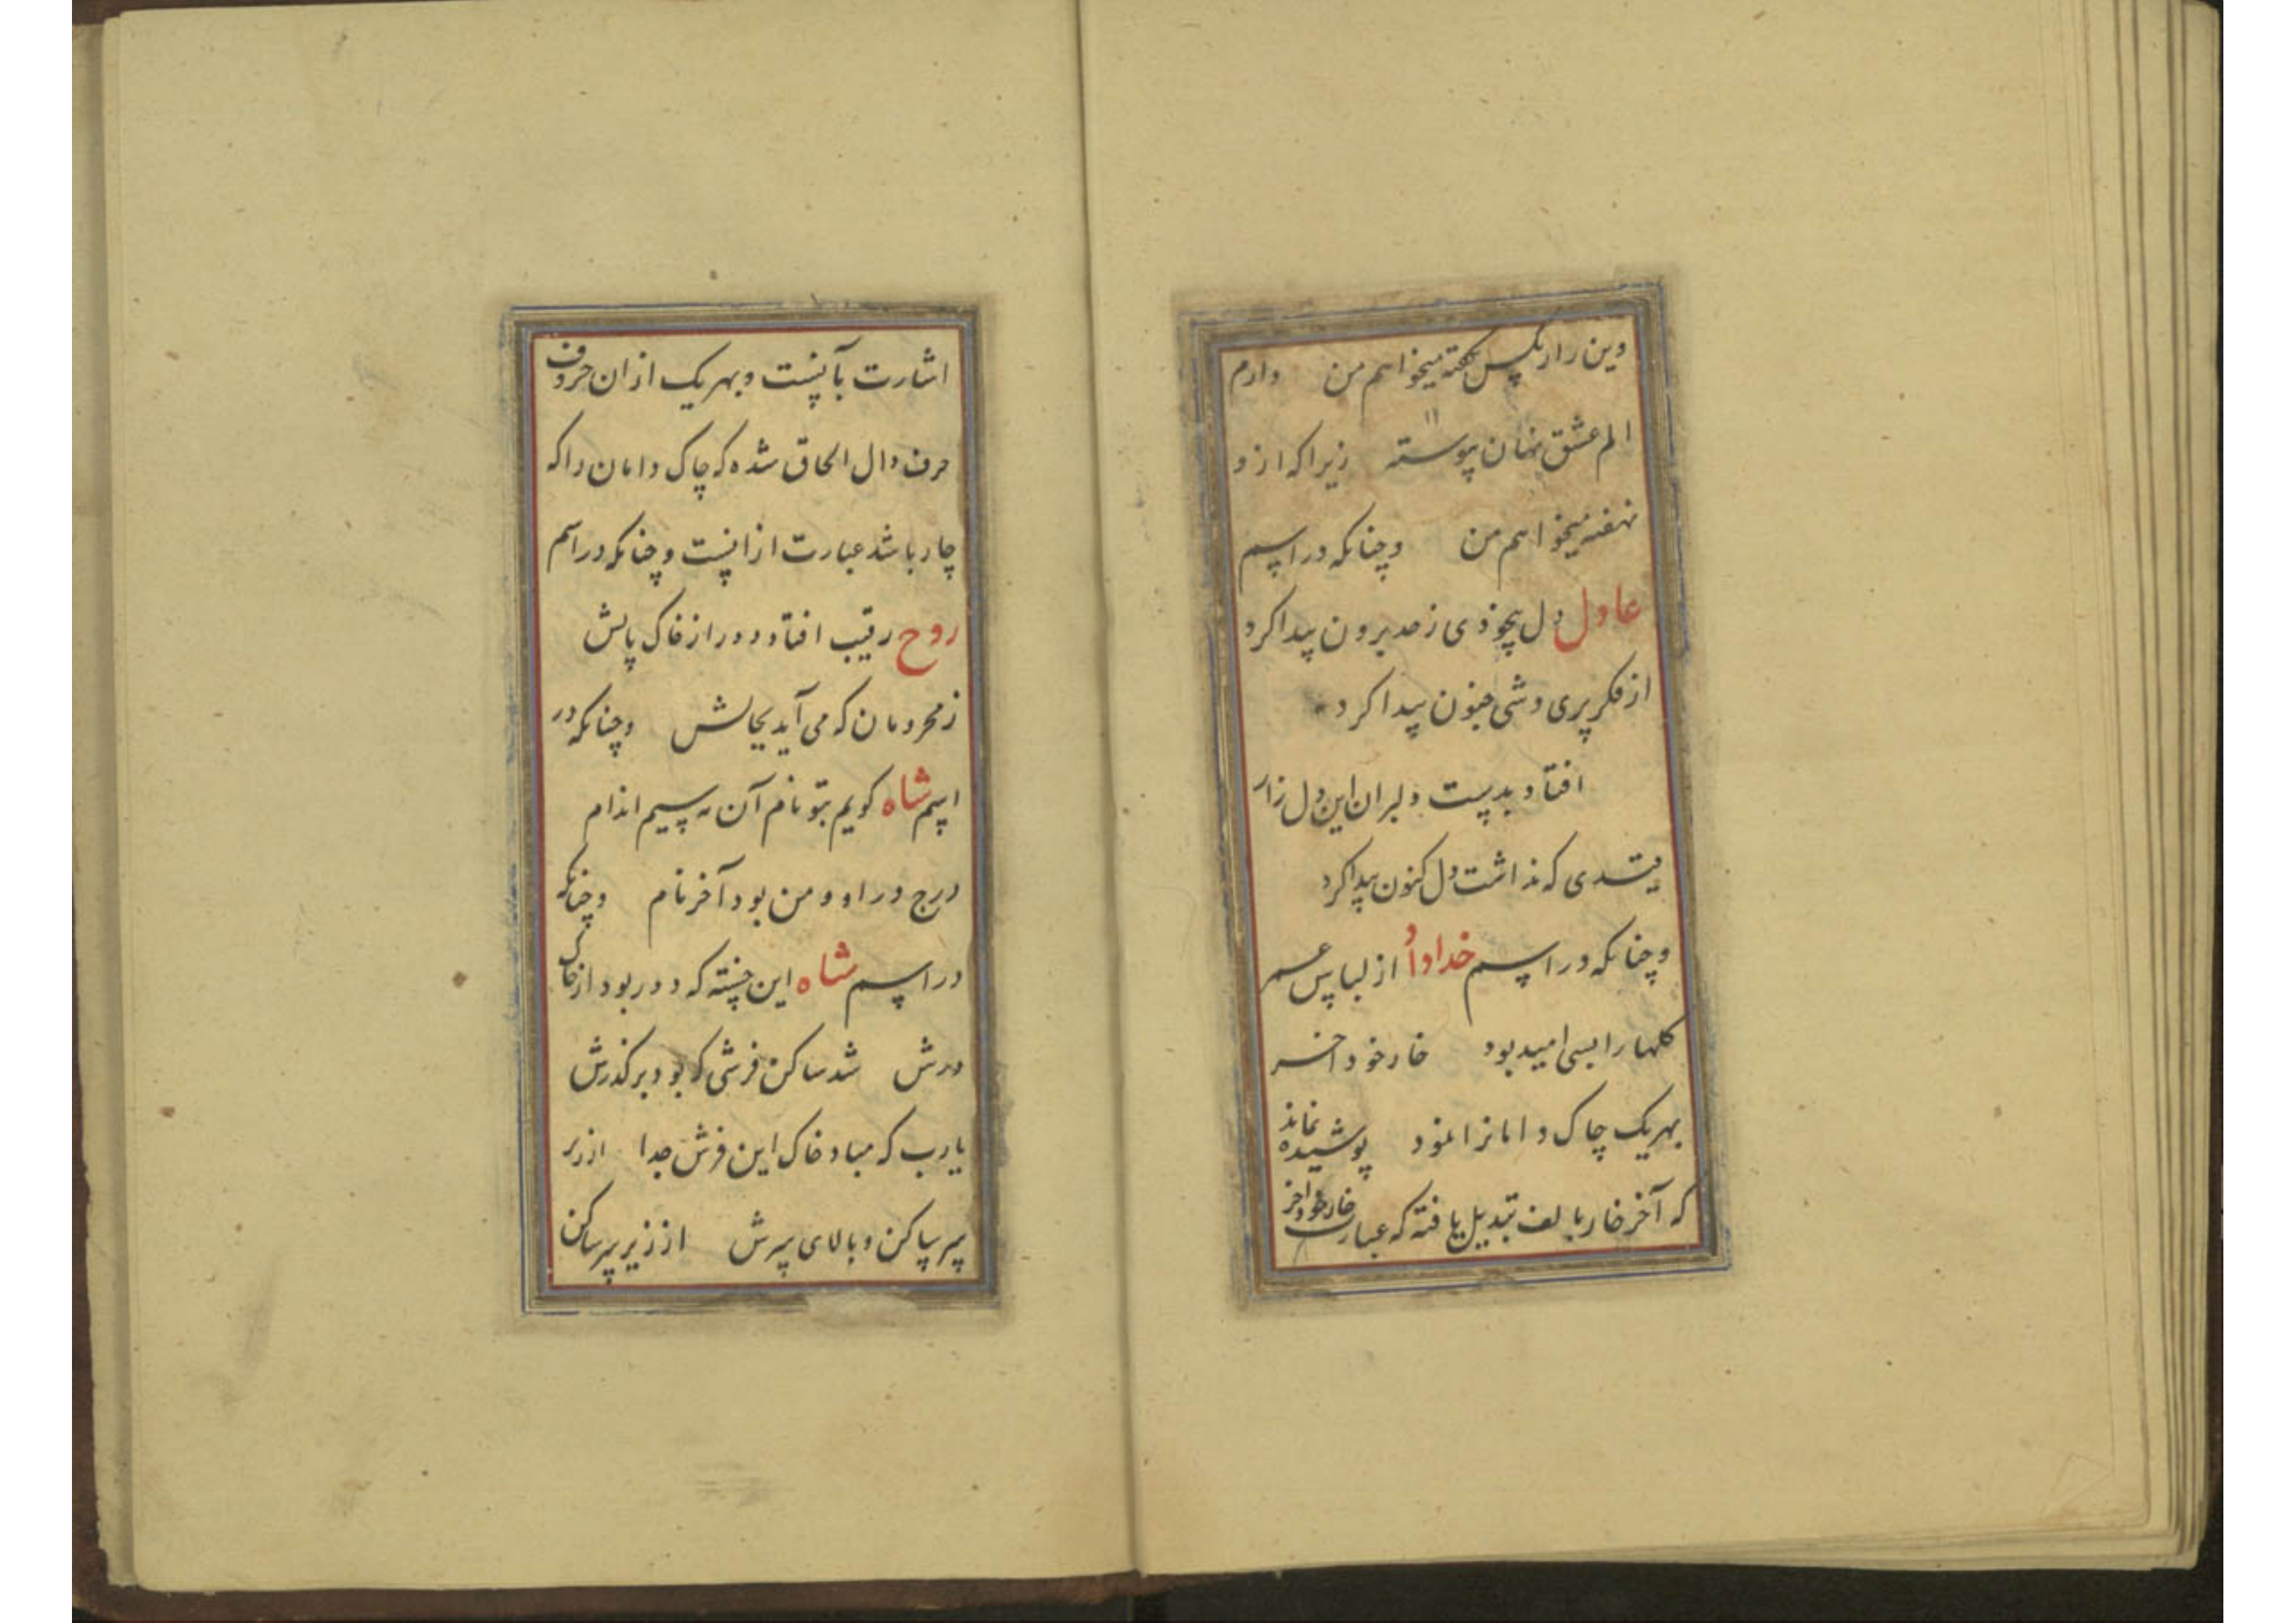 وین راز بکس نکفته میخواهم من دارم
الم عشق نهان پیوسته زیرا که ازو
نهفته میخواهم من وچنانکه در اسم
عادل دل بیخودی ز حد برون پیدا کرد
از فکر پری وشی جنون پیدا کرد
افتاد بدست دلبران این دل زار
قیدی که نداشت دل کنون پیدا کرد
وچنانکه در اسم خداداد از لباس عمر
کلها را بسی امید بود خار خود اخر
بهر یک چاک دامانرا نمود پوشیده نماند
که آخر خار بالف تبدیل یافته که عبارت خار خود اخر
اشارت بآنست وبهر یک ازان حروف
حرف دال الحاق شده که چاک دامان را که
چار باشد عبارت ازانست وچنانکه در اسم
روح رقیب افتاد دور از خاک پایش
ز محرومان که می آید بجایش وچنانکه در
اسم شاه کویم بتو نام آن مه سیم اندام
درج در او و من بود آخر نام وچنانکه
در اسم شاه این خسته که دور بود از خاک
درش شد ساکن فرشی که بود بر کذرش
یارب که مباد خاک این فرش جدا از زیر
سر ساکن و بالای سرش از زیر سر ساکن